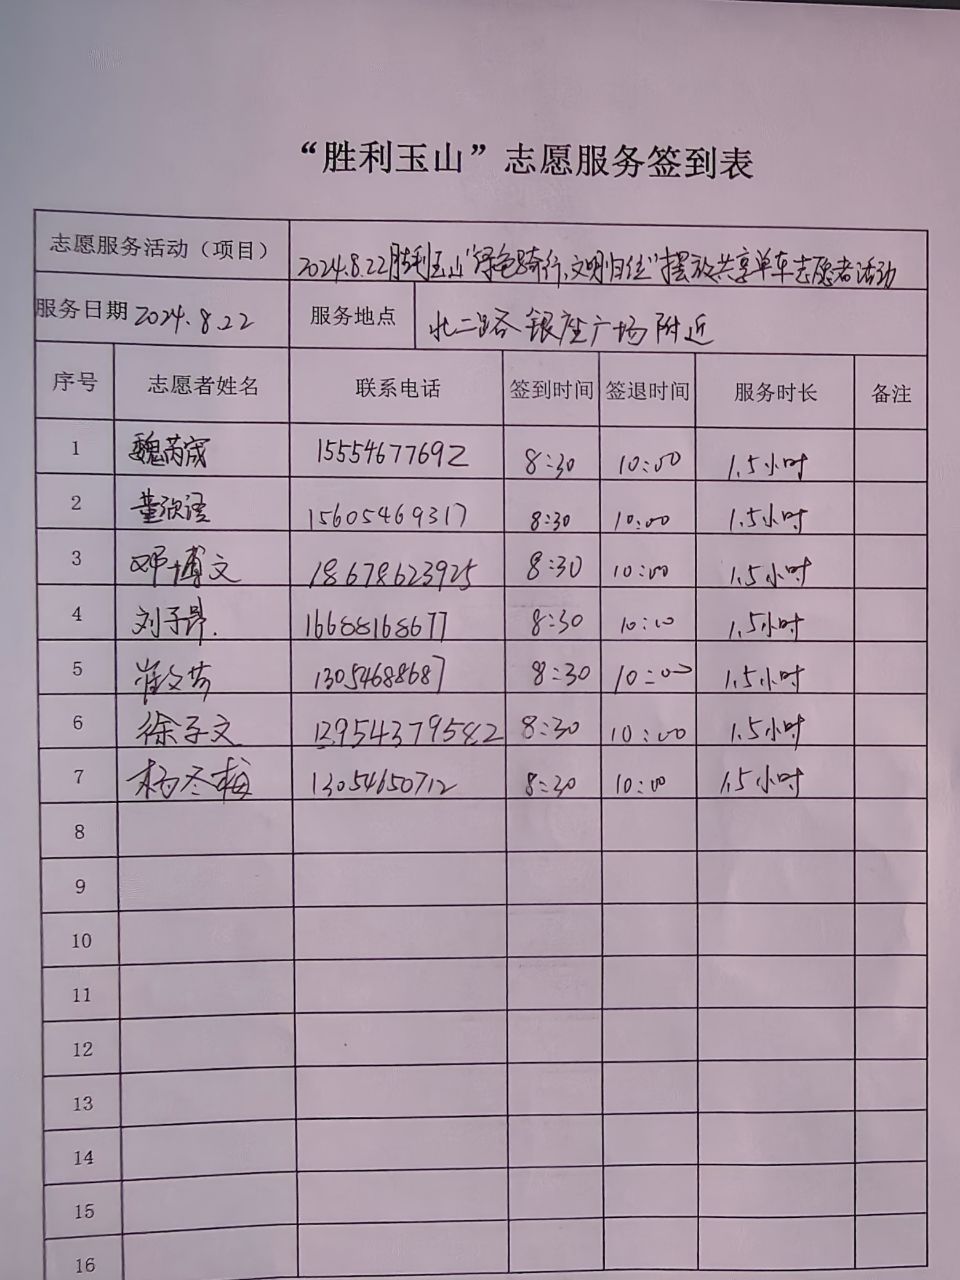 “胜利玉山”志愿服务签到表
志愿服务活动（项目） 2024.8.22胜利玉山“绿色骑行,文明归位”摆放共享单车志愿者活动
服务日期 2024.8.22 服务地点 北二路银座广场附近
序号 志愿者姓名 联系电话 签到时间 签退时间 服务时长 备注
1 魏芮宬 15554677692 8:30 10:00 1.5小时
2 董欣语 15605469317 8:30 10:00 1.5小时
3 邓博文 18678623925 8:30 10:00 1.5小时
4 刘子昂. 16688168677 8:30 10:00 1.5小时
5 崔文芳 13054688687 8:30 10:00 1.5小时
6 徐子文 13954379582 8:30 10:00 1.5小时
7 杨冬梅 13054650712 8:30 10:00 1.5小时
8
9
10
11
12
13
14
15
16